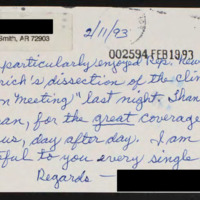 Smith, AR 72903
2/11/93
002594 FEB 19 93
particularly enjoyed Rep. New
rich's dissection of the Clin
n "meeting" last night. Than
an, for the great coverage
us, day after day. I am
ful to you every single
Regards —